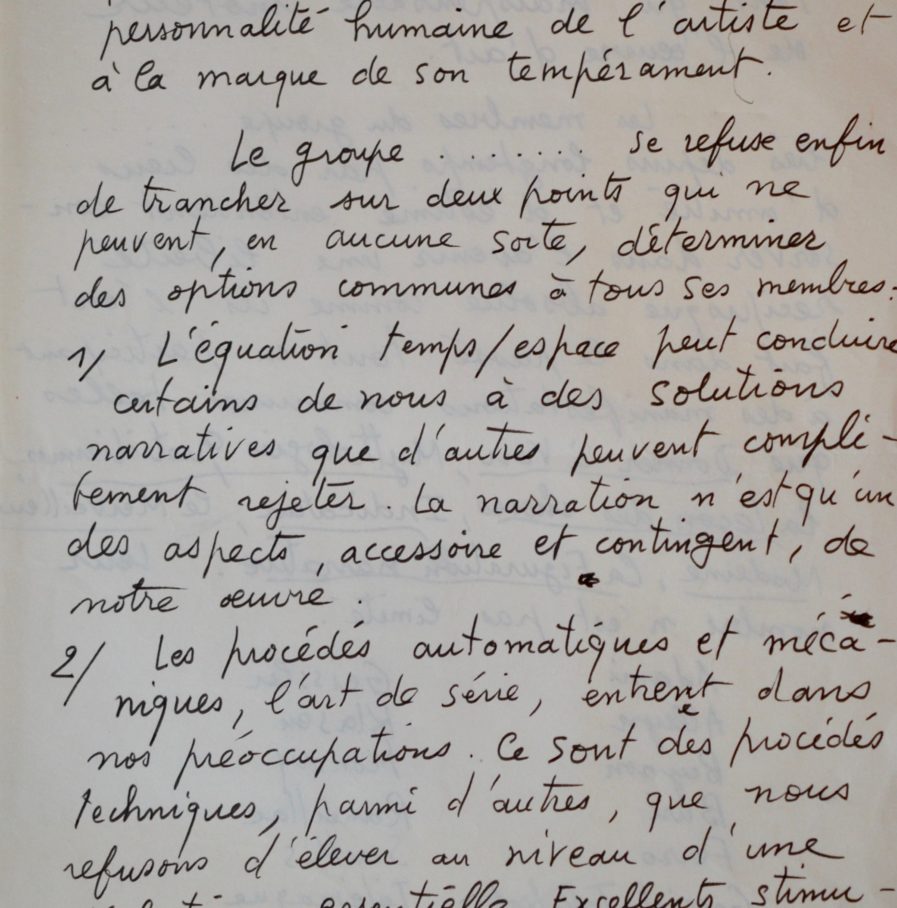 personnalité humaine de l'artiste et
à la marque de son tempérament.
Le groupe .......... se refuse enfin
de trancher sur deux points qui ne
peuvent, en aucune sorte, déterminer
des options communes à tous ses membres:
1/ L'équation temps/espace peut conduire
certains de nous à des solutions
narratives que d'autres peuvent complè-
tement rejeter. La narration n'est qu'un
des aspects, accessoire et contingent, de
notre œuvre.
2/ Les procédés automatiques et méca-
niques, l'art de série, entrent dans
nos préoccupations. Ce sont des procédés
techniques, parmi d'autres, que nous
refusons d'élever au niveau d'une
essentielle. Excellents stimu-